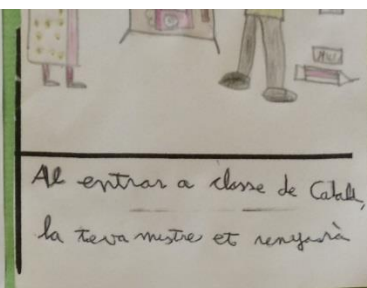 Al entrar a classe de Català,
la teva mestre et renyarà